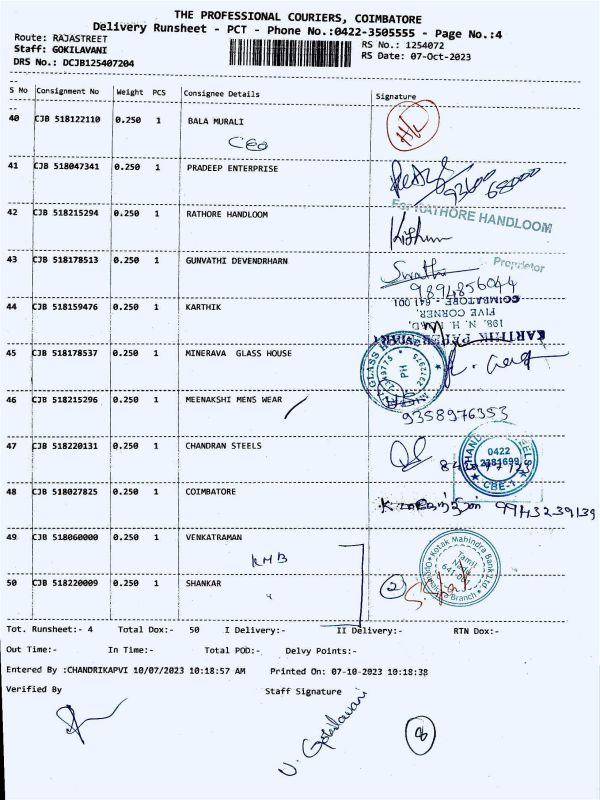 THE PROFESSIONAL COURIERS, COIMBATORE
Delivery Runsheet - PCT - Phone No.:0422-3505555 - Page No.:4
Route: RAJASTREET
Staff: GOKILAVANI
DRS No.: DCJB125407204
RS No.: 1254072
RS Date: 07-Oct-2023
S No Consignment No Weight PCS Consignee Details Signature
40 CJB 518122110 0.250 1 BALA MURALI H/L
CEO
41 CJB 518047341 0.250 1 PRADEEP ENTERPRISE
42 CJB 518215294 0.250 1 RATHORE HANDLOOM
For RATHORE HANDLOOM
43 CJB 518178513 0.250 1 GUNVATHI DEVENDRHARN
Proprietor
Swathi
9894856044
44 CJB 518159476 0.250 1 KARTHIK
COIMBATORE - 641 001
FIVE CORNER,
198, N. H. ROAD,
45 CJB 518178537 0.250 1 MINERAVA GLASS HOUSE
PH
46 CJB 518215296 0.250 1 MEENAKSHI MENS WEAR
9358976353
47 CJB 518220131 0.250 1 CHANDRAN STEELS
0422
2381699
CBE-1
48 CJB 518027825 0.250 1 COIMBATORE
9943239139
49 CJB 518060000 0.250 1 VENKATRAMAN
KMB
Kotak Mahindra Bank Ltd
Tamil
Nadu
Branch
50 CJB 518220009 0.250 1 SHANKAR
2
Tot. Runsheet:- 4 Total Dox:- 50 I Delivery:- II Delivery:- RTN Dox:-
Out Time:- In Time:- Total POD:- Delvy Points:-
Entered By :CHANDRIKAPVI 10/07/2023 10:18:57 AM Printed On: 07-10-2023 10:18:38
Verified By Staff Signature
V. Gokilavani
8